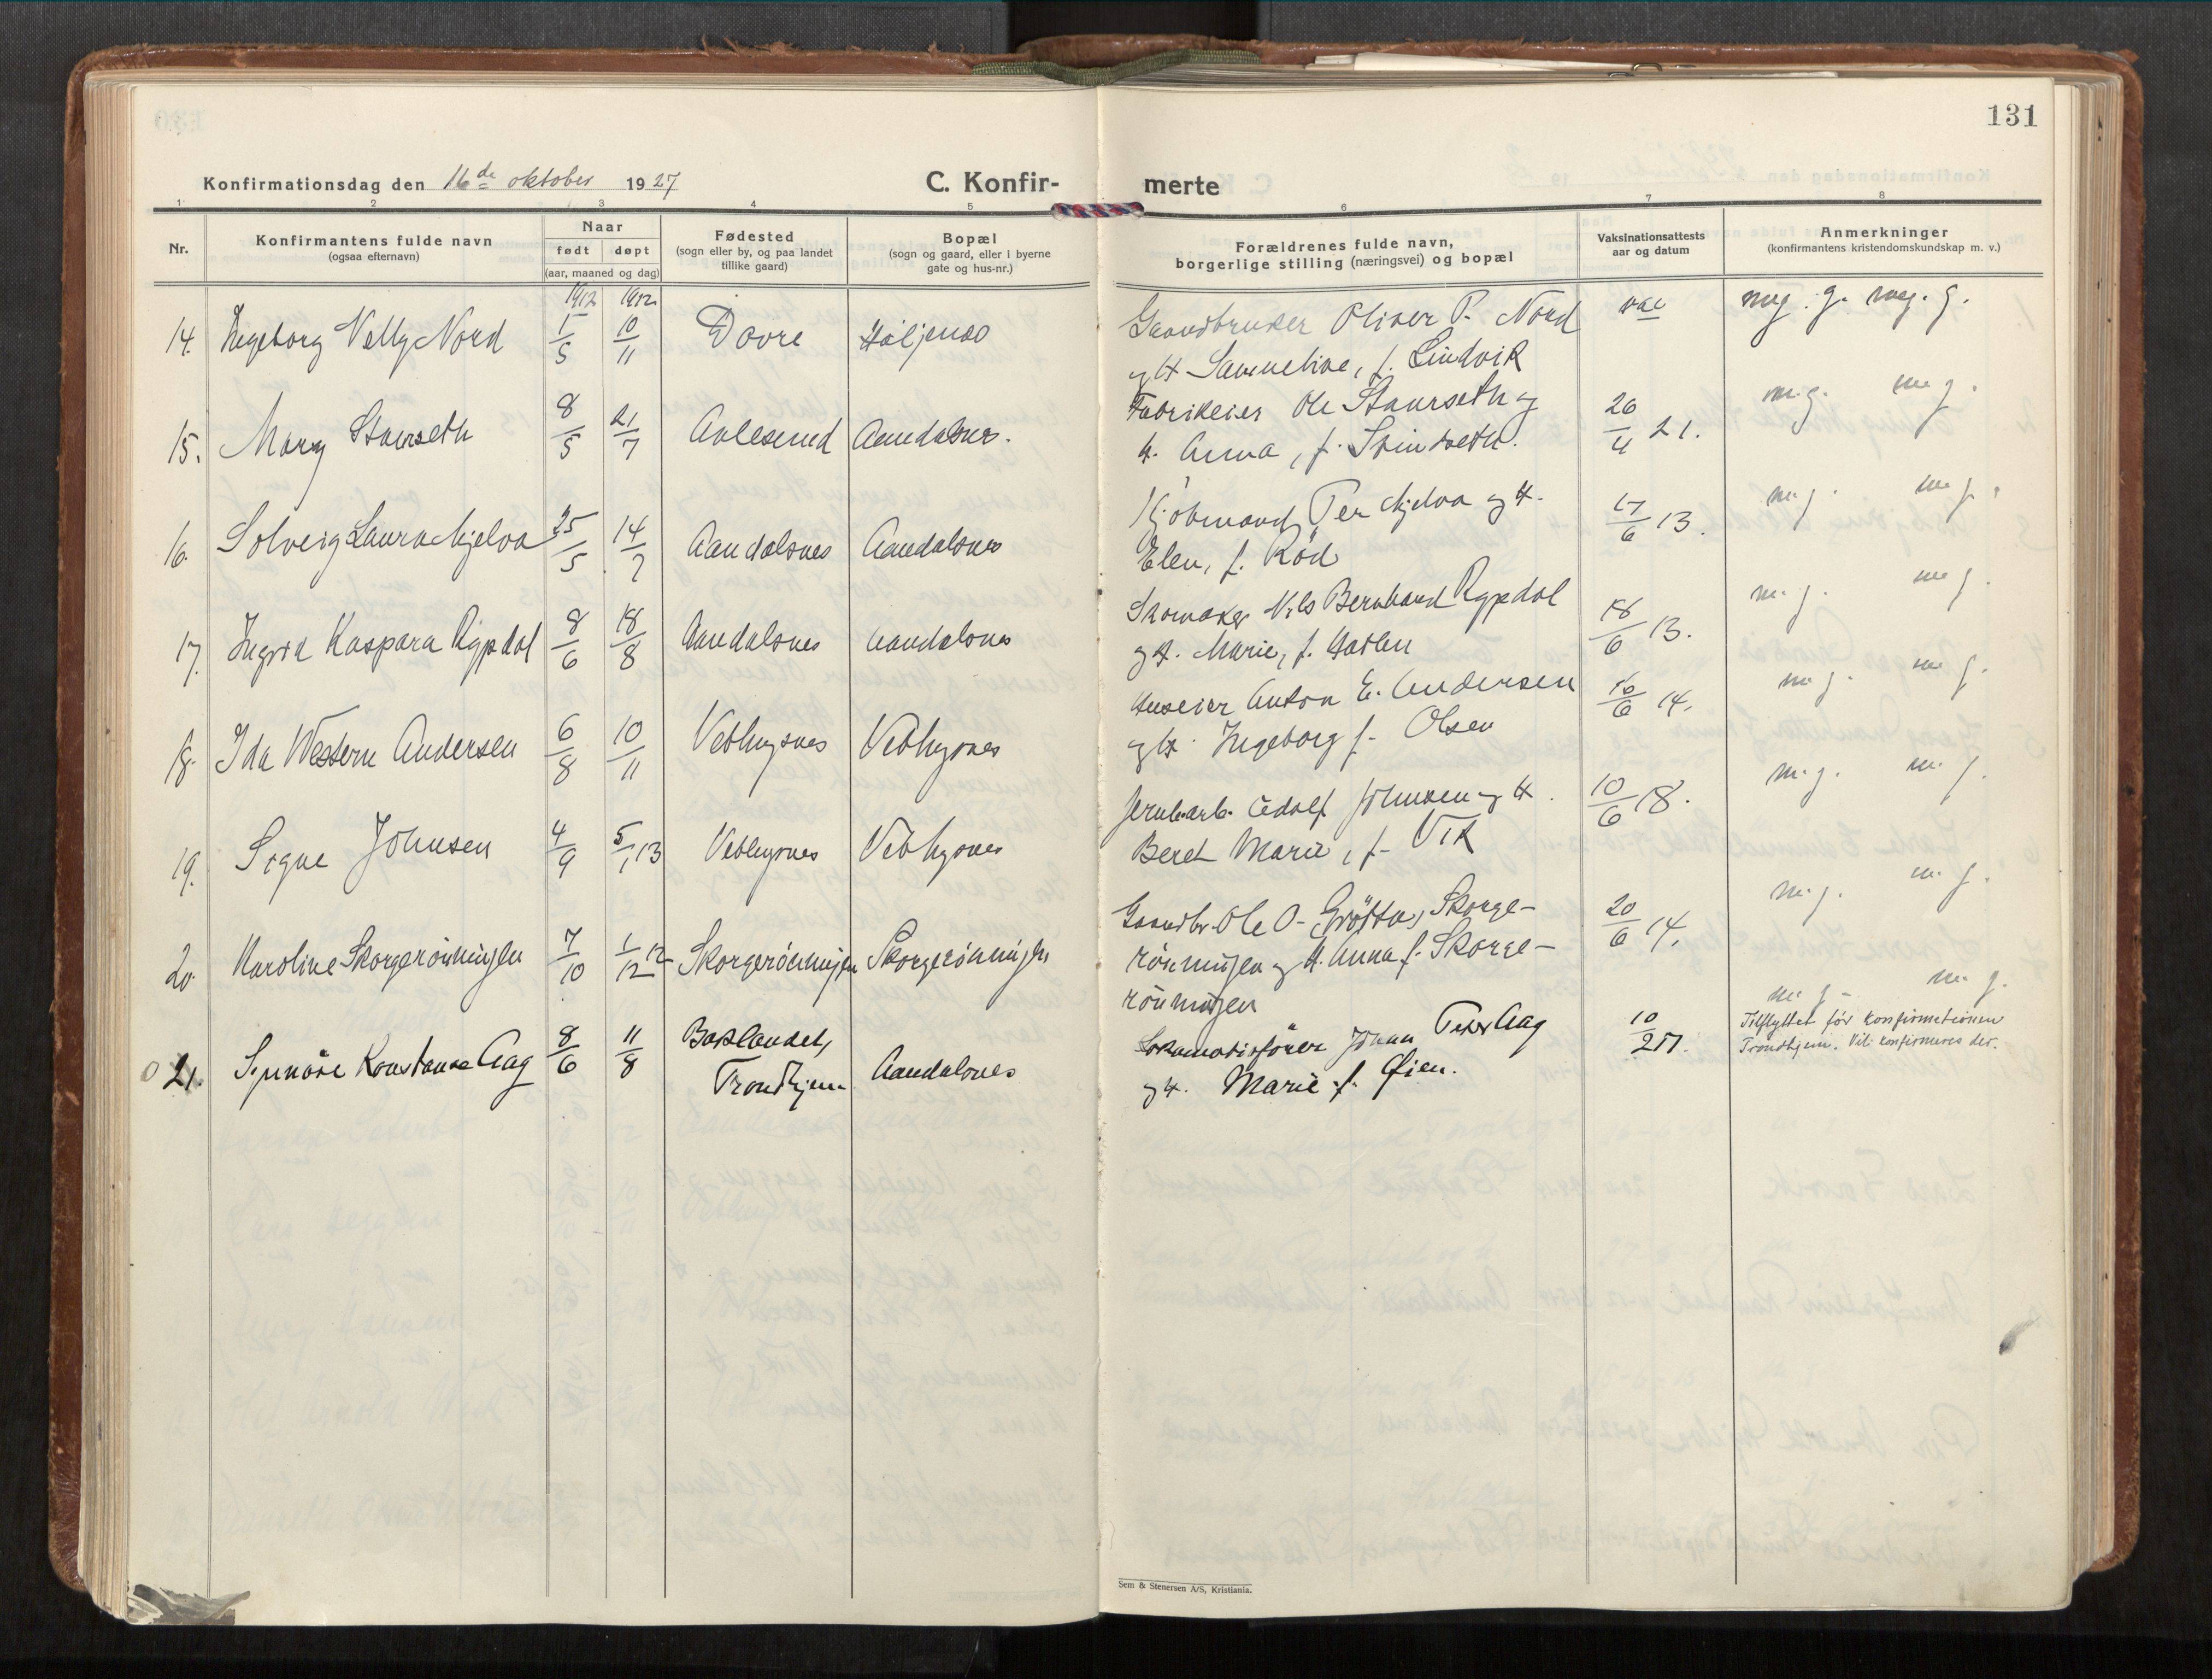 131
Konfirmationsdag den 16de oktober 1927
C. Konfir- merte
1 2 3 4 5 6 7 8
Nr.
Konfirmantens fulde navn
(ogsaa efternavn)
Naar
født døpt
(aar, maaned og dag)
Fødested
(sogn eller by, og paa landet
tillike gaard)
Bopæl
(sogn og gaard, eller i byerne
gate og hus-nr.)
Forældrenes fulde navn,
borgerlige stilling (næringsvei) og bopæl
Vaksinationsattests
aar og datum
Anmerkninger
(konfirmantens kristendomskundskap m. v.)
1912 1912
14. Ingeborg Nelly Nord 1/5 10/11 Dovre Gaardbruker Oliver P. Nord vac meg. g. meg. g.
og H f. Lindvik
15. Mary Staurseth 8/5 21/7 Aalesund Aandalsnes. Fabrikeier Ole Staurseth og 26/4 21. m. g. m g.
H. Anna, f.
16. Solveig Laura Mjelva 25/5 14/7 Aandalsnes Aandalsnes Kjøbmand Per Mjelva og H. 17/6 13. m. g. m g.
Elen, f. Röd
17. Ingrid Kaspara Rypdal 8/6 18/8 Aandalsnes Aandalsnes Skomaker Nils Bernhard Rypdal 18/6 13. m. g. m g.
og H. Marie, f.
18. Ida Western Andersen 6/8 10/11 Veblugsnes Veblugsnes Huseier Anton E. Andersen 16/6 14. m g. m g.
og H. Ingeborg f. Olsen
19. Signe Johnsen 4/9 5/1 13 Veblugsnes Veblugsnes Jernb.arb. Adolf Johnsen og H. 10/6 18. m. g. m. g.
Beret Marie, f. Vik
20. Karoline Skorgerönningen 7/10 1/12 12 Skorgerönningen Skorgerönningen Gaardbr. Ole O. Grötta, Skorge- 20/6 14. m. g. m. g.
rönningen og H. Anna f. Skorge-
rönningen
m. g. m. g.
21. Synnöve Konstanse Aag 8/6 11/8 Baklandet, Trondhjem Aandalsnes Lokomotivförer Johan Peter Aag 10/2 17. Tilflyttet för konfirmationen
og H. Marie f. Øien. Trondhjem. Vil konfirmeres der.
Sem & Stenersen A/S, Kristiania.